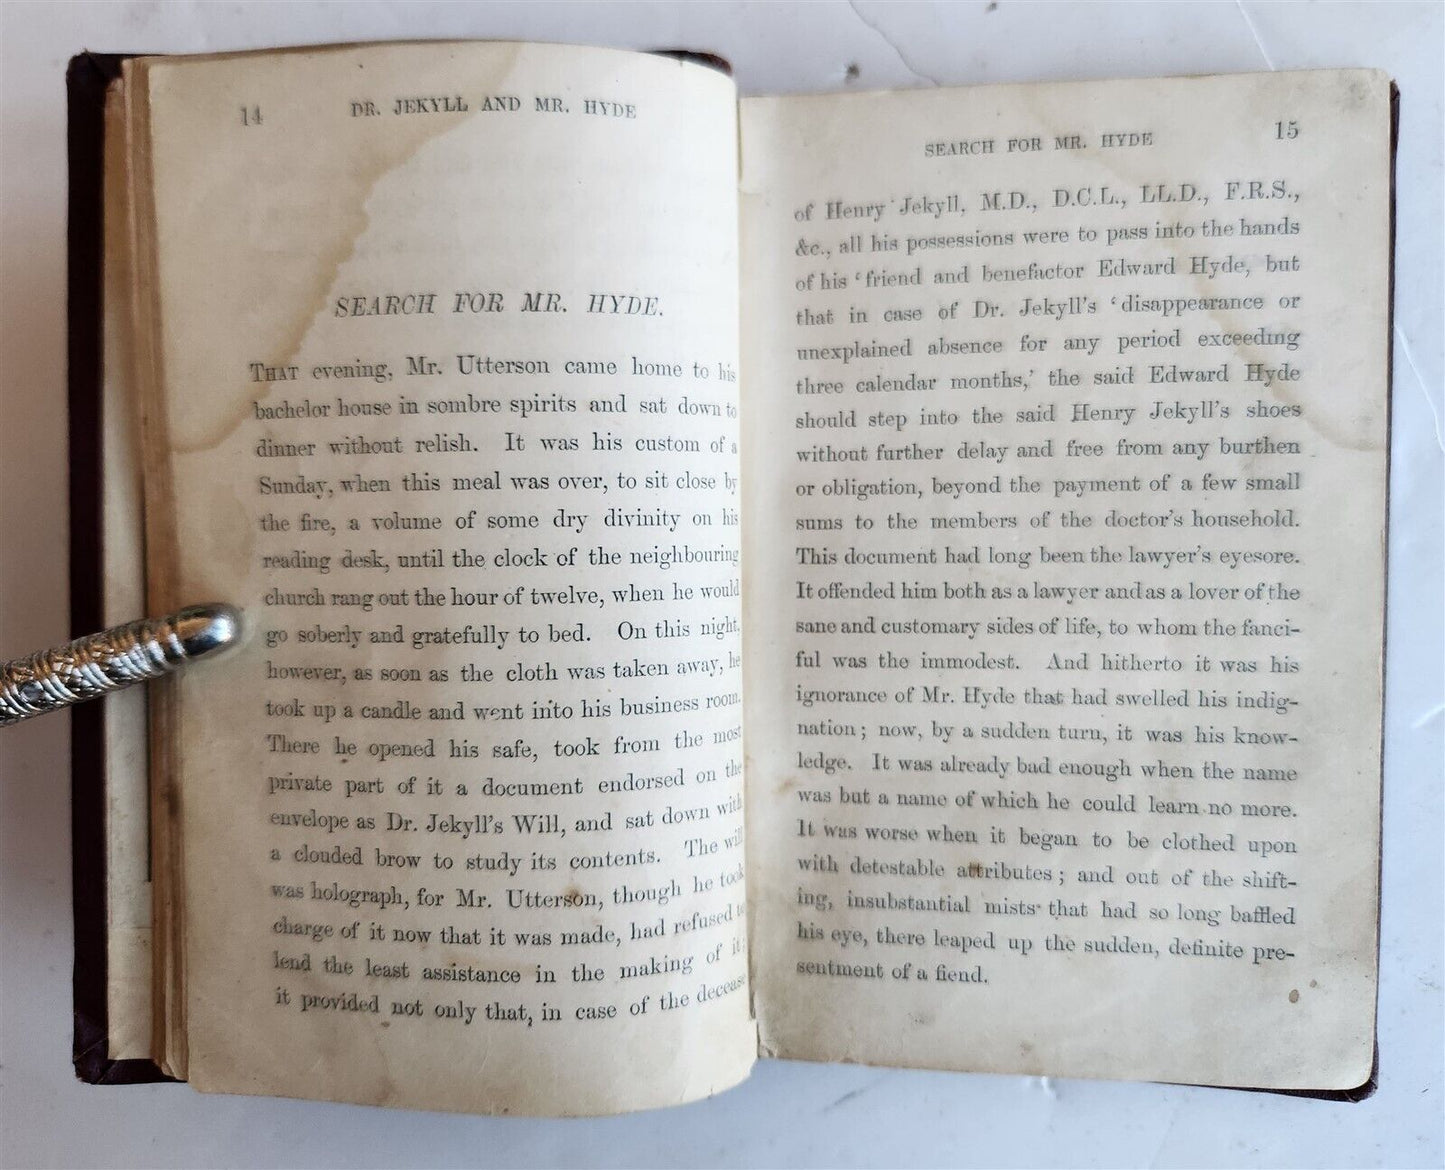 14
DR. JEKYLL AND MR. HYDE
SEARCH FOR MR. HYDE.
THAT evening, Mr. Utterson came home to his
bachelor house in sombre spirits and sat down to
dinner without relish. It was his custom of a
Sunday, when this meal was over, to sit close by
the fire, a volume of some dry divinity on his
reading desk, until the clock of the neighbouring
church rang out the hour of twelve, when he would
go soberly and gratefully to bed. On this night,
however, as soon as the cloth was taken away, he
took up a candle and went into his business room.
There he opened his safe, took from the most
private part of it a document endorsed on the
envelope as Dr. Jekyll's Will, and sat down with
a clouded brow to study its contents. The will
was holograph, for Mr. Utterson, though he took
charge of it now that it was made, had refused to
lend the least assistance in the making of it;
it provided not only that, in case of the decease
SEARCH FOR MR. HYDE
15
of Henry Jekyll, M.D., D.C.L., LL.D., F.R.S.,
&c., all his possessions were to pass into the hands
of his 'friend and benefactor Edward Hyde, but
that in case of Dr. Jekyll's 'disappearance or
unexplained absence for any period exceeding
three calendar months,' the said Edward Hyde
should step into the said Henry Jekyll's shoes
without further delay and free from any burthen
or obligation, beyond the payment of a few small
sums to the members of the doctor's household.
This document had long been the lawyer's eyesore.
It offended him both as a lawyer and as a lover of the
sane and customary sides of life, to whom the fanci-
ful was the immodest. And hitherto it was his
ignorance of Mr. Hyde that had swelled his indig-
nation; now, by a sudden turn, it was his know-
ledge. It was already bad enough when the name
was but a name of which he could learn no more.
It was worse when it began to be clothed upon
with detestable attributes; and out of the shift-
ing, insubstantial mists that had so long baffled
his eye, there leaped up the sudden, definite pre-
sentment of a fiend.